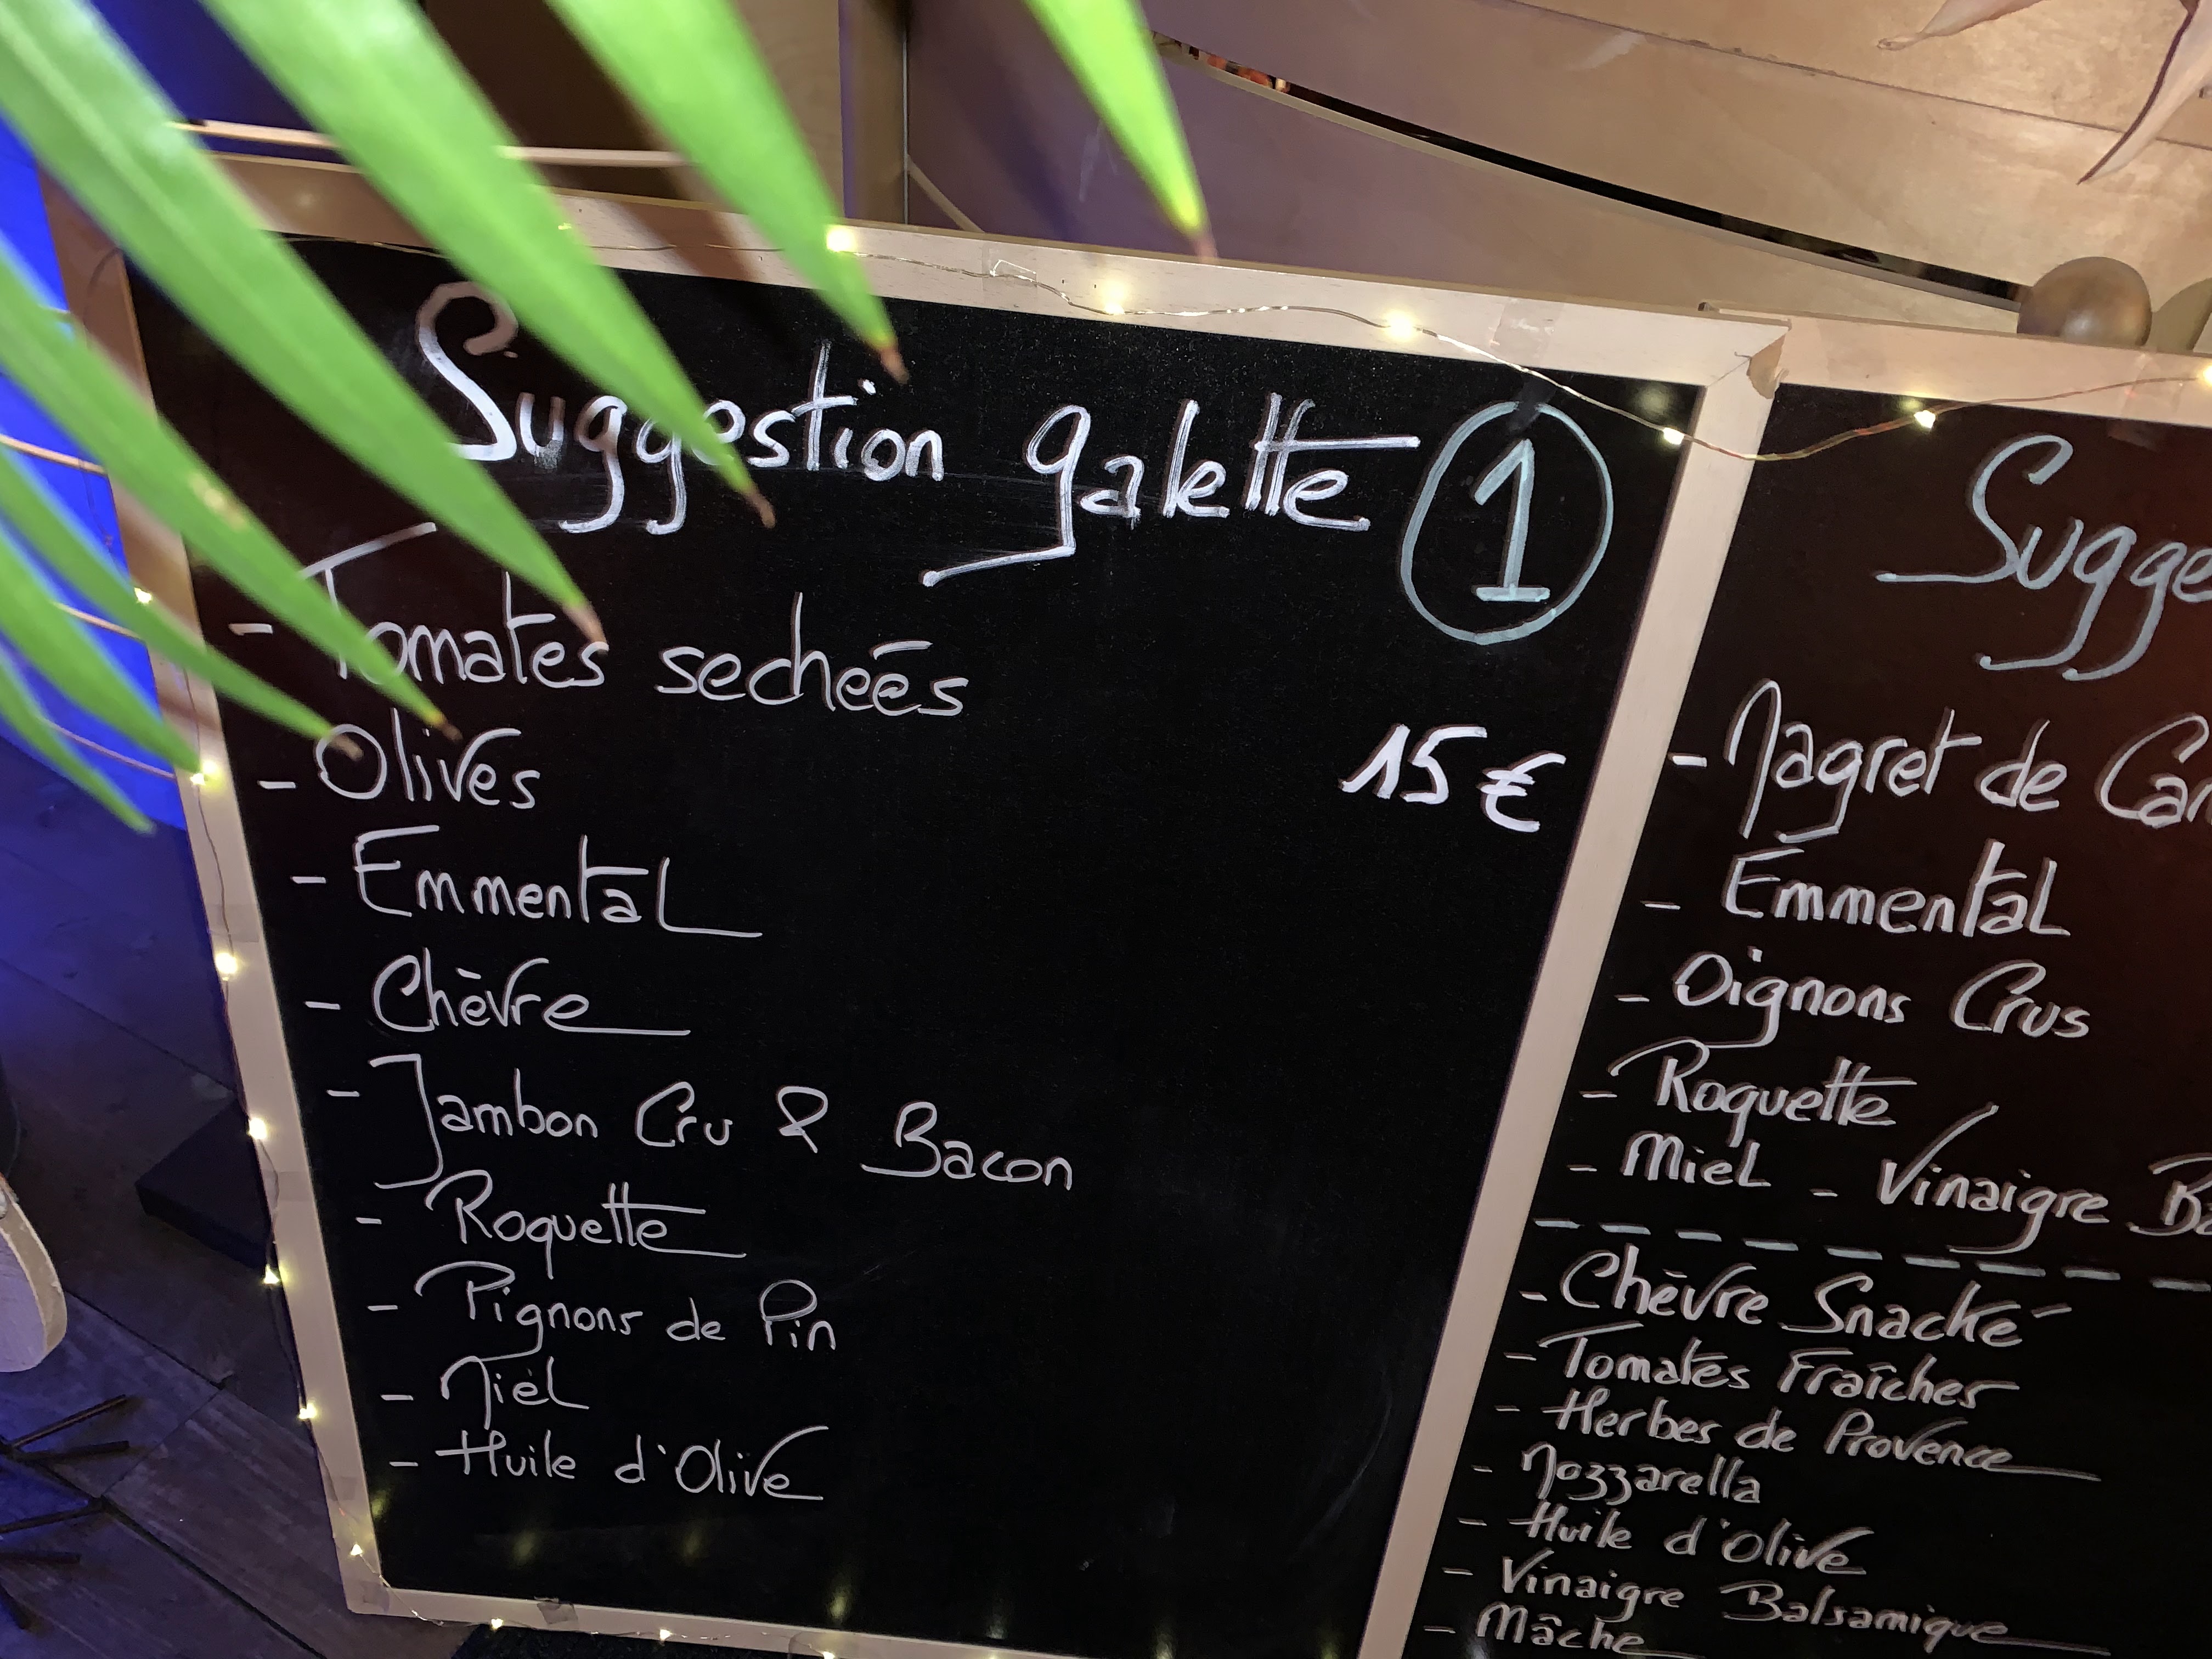 Suggestion galette 1
- Tomates secheés
- Olives
15€
- Emmental
- Chèvre
- Jambon Cru & Bacon
- Roquette
- Pignons de Pin
- Miel
- Huile d'Olive
Sugge
- Magret de Can
- Emmental
- Oignons Crus
- Roquette
- Miel - Vinaigre Ba
- Chèvre Snacké
- Tomates Fraîches
- Herbes de Provence
- Mozzarella
- Huile d'Olive
- Vinaigre Balsamique
- Mâche